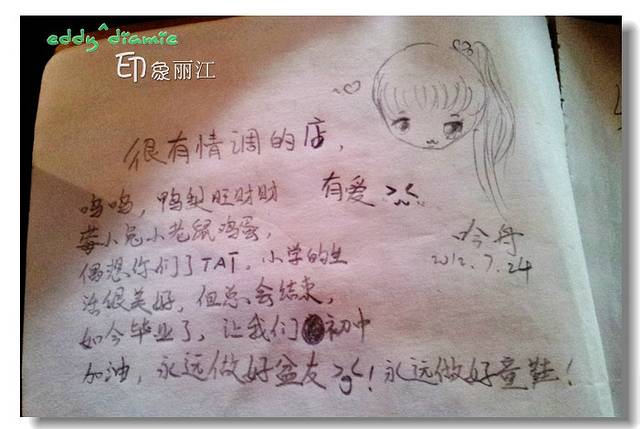 eddy^diamie
印象丽江
很有情调的店，
呜呜，鸭梨旺财财 有爱 >~<
莓小兔小老鼠鸡蛋，
偶想你们了TAT。小学的生
活很美好，但总会结束，
如今毕业了，让我们初中
加油，永远做好盆友>3<！永远做好童鞋！
2012.7.24